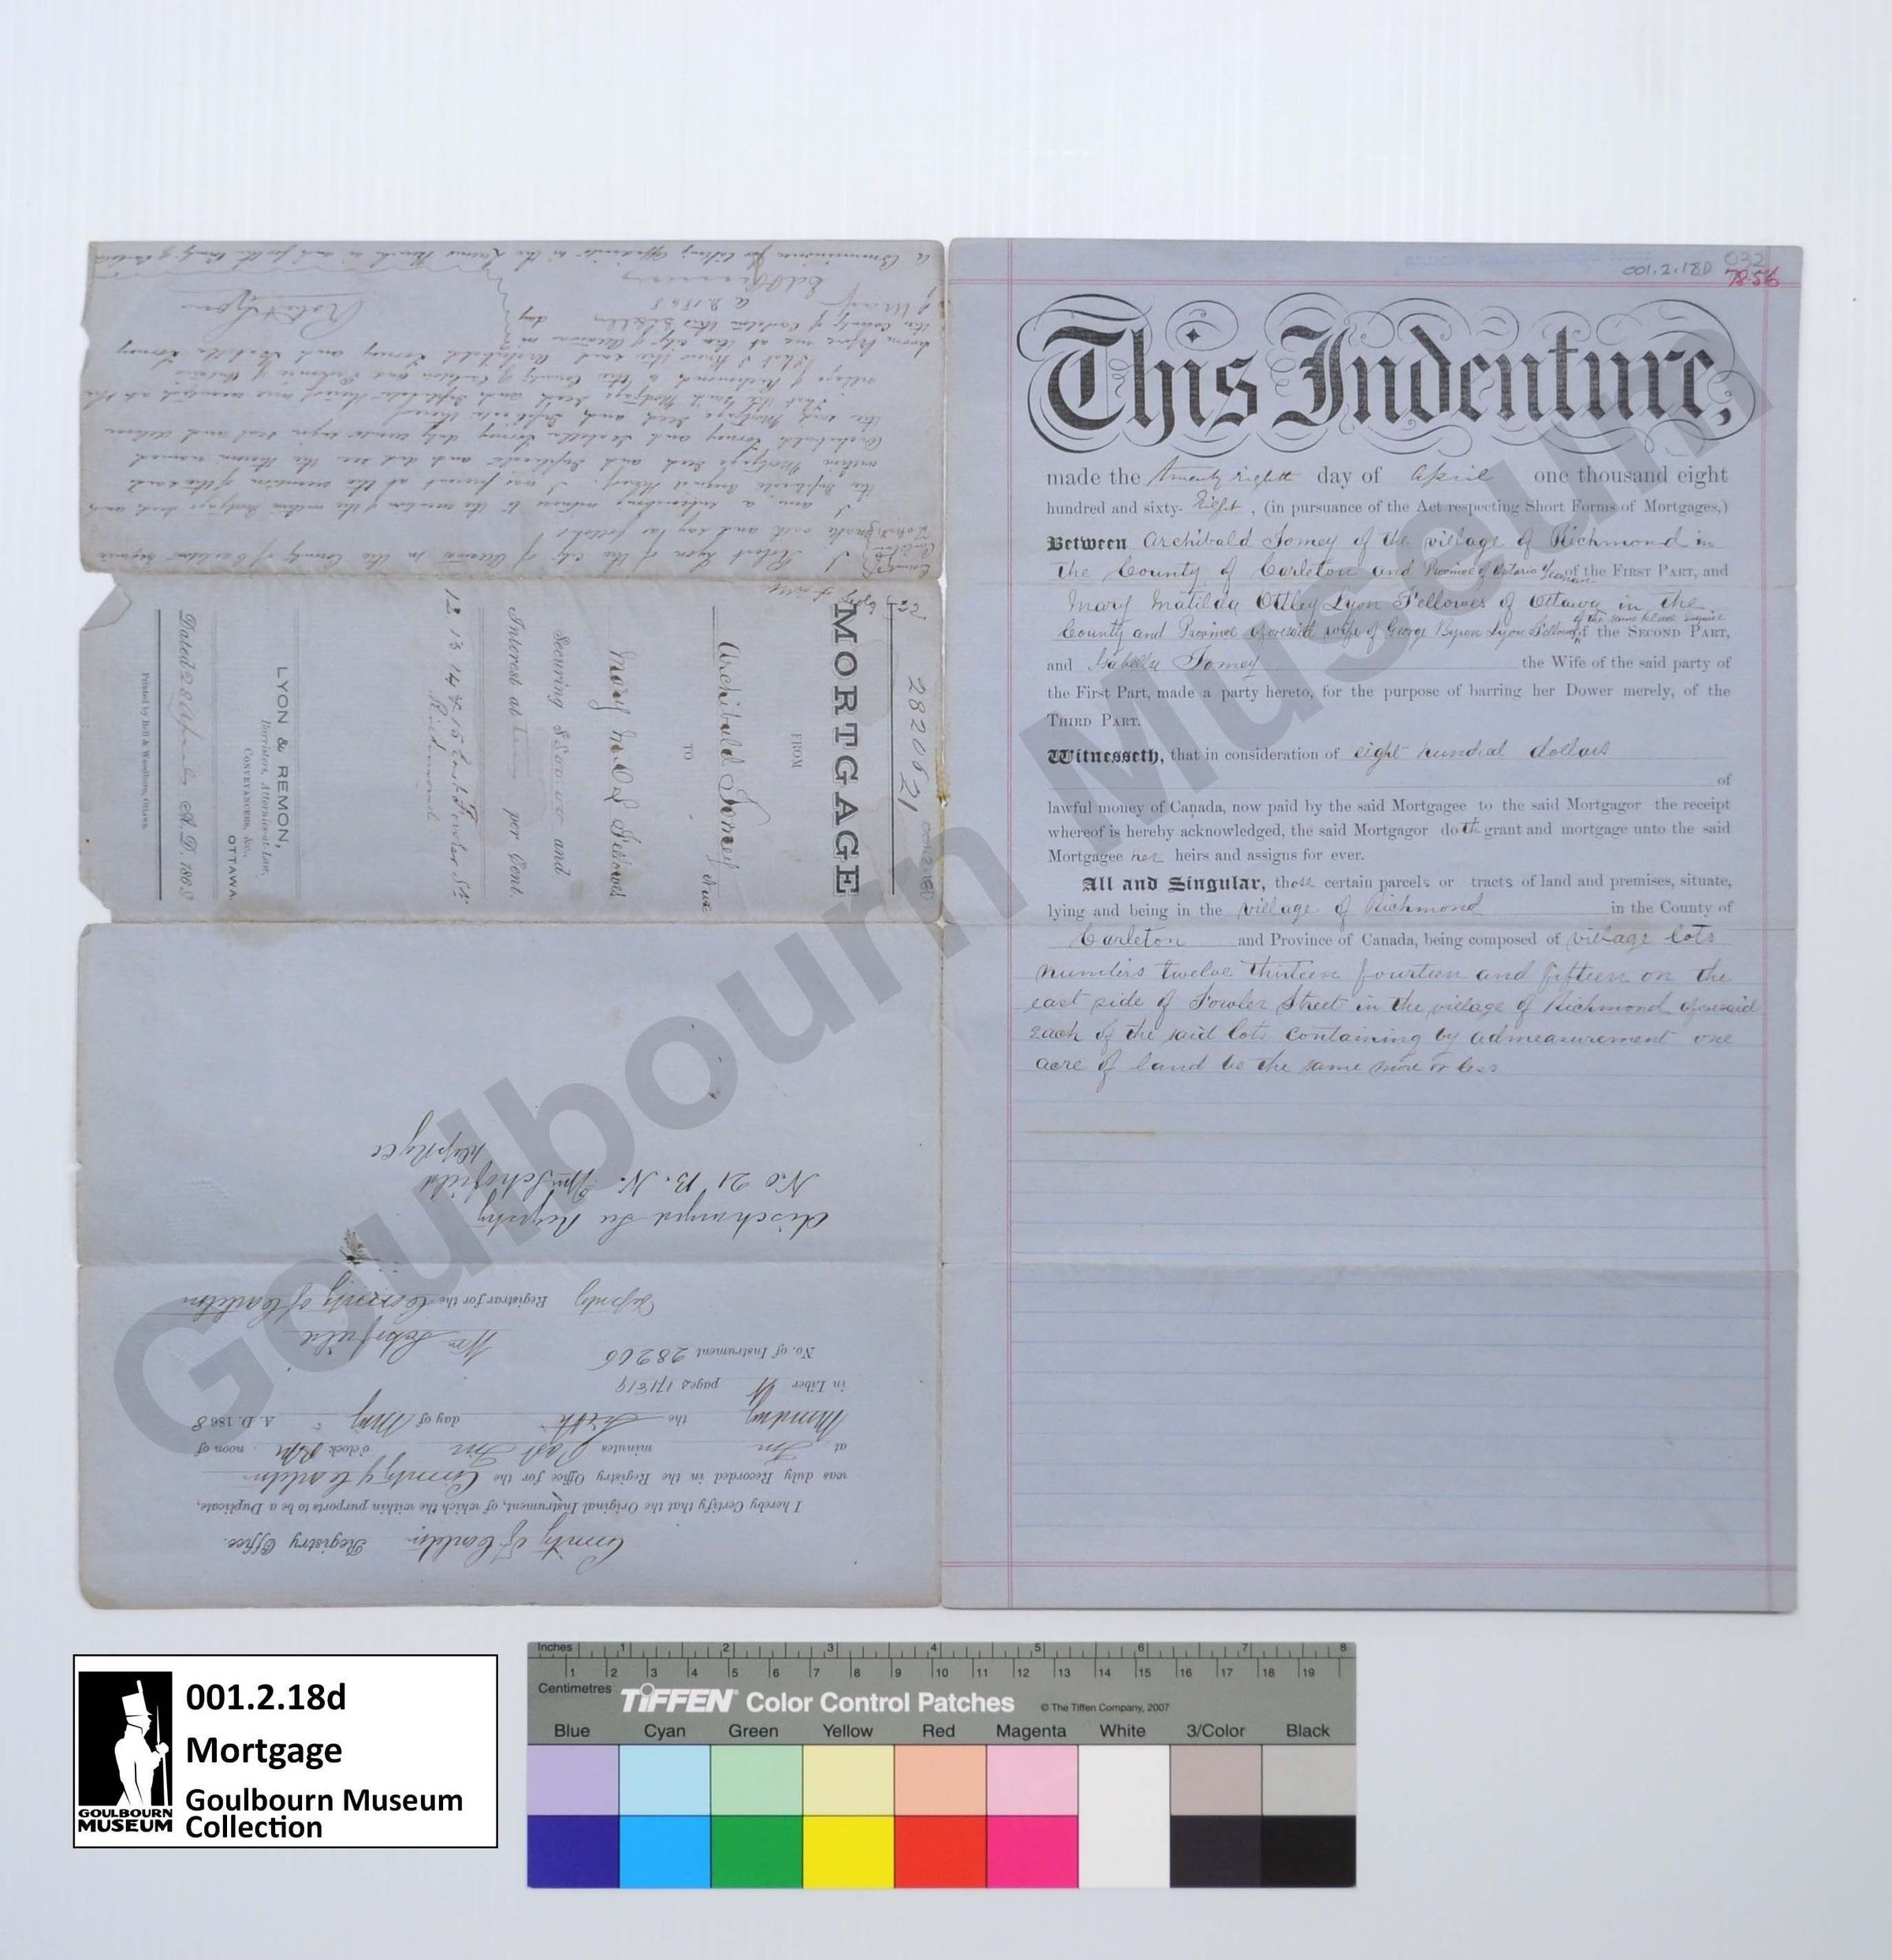 001.2.18D
032
7856
This Indenture,
made the twenty eighth day of April one thousand eight
hundred and sixty-Eight, (in pursuance of the Act respecting Short Forms of Mortgages,)
Between Archibald Tomey of the village of Richmond in
the County of Carleton and Province of Ontario Yeoman of the FIRST PART, and
Mary Matilda Ottley Lyon Fellowes of Ottawa in the
County and Province aforesaid wife of George Byron Lyon Fellowes of the same place Esquire of the SECOND PART,
and Isabella Tomey the Wife of the said party of
the First Part, made a party hereto, for the purpose of barring her Dower merely, of the
THIRD PART.
Witnesseth, that in consideration of eight hundred dollars
of
lawful money of Canada, now paid by the said Mortgagee to the said Mortgagor the receipt
whereof is hereby acknowledged, the said Mortgagor doth grant and mortgage unto the said
Mortgagee her heirs and assigns for ever.
All and Singular, those certain parcels or tracts of land and premises, situate,
lying and being in the village of Richmond in the County of
Carleton and Province of Canada, being composed of village lots
numbers twelve thirteen fourteen and fifteen on the
east side of Fowler Street in the village of Richmond aforesaid
Each of the said lots containing by admeasurement one
acre of land be the same more or less
I Robert Lyon of the city of Ottawa in the County of Carleton Esquire
make oath and say as follows
I am a subscribing witness to the execution of the within Mortgage deed and
the duplicate thereof. I was present at the execution of the said
within Mortgage deed and duplicate and did see the therein named
Archibald Tomey and Isabella Tomey duly execute sign seal and deliver
the said Mortgage deed and duplicate thereof
That the said Mortgage deed and duplicate thereof were executed at the
village of Richmond in the County of Carleton and Province of Ontario
That I know the said Archibald Tomey and Isabella Tomey
Sworn before me at the city of Ottawa in
the County of Carleton this day
of May A.D. 1868
Robert Lyon
A Commissioner for taking affidavits in the Queens Bench in and for the County of Carleton
28206
21
MORTGAGE
FROM
Archibald Tomey
TO
Mary M.O.L Fellowes
Securing $800.00 and
Interest at per Cent.
12. 13. 14 & 15 East Fowler St.
Richmond
LYON & REMON,
Barristers, Attornies-at-Law,
CONVEYANCERS, &c.,
OTTAWA
Dated 28 April A.D. 1868
Printed by Bell & Woodburn, Ottawa
County of Carleton Registry Office.
I hereby Certify that the Original Instrument, of which the within purports to be a Duplicate,
was duly Recorded in the Registry Office for the County of Carleton
at Ten minutes Past Ten o'clock noon of
Monday the day of May A. D. 1868
in Liber pages
No. of Instrument 28206
Wm Schofield
Deputy Registrar for the County of Carleton
discharged See Registry
No 21 B. N. Wm Schofield
Goulbourn Museum
001.2.18d
Mortgage
Goulbourn Museum
Collection
GOULBOURN
MUSEUM
Inches 1 2 3 4 5 6 7 8
Centimetres 1 2 3 4 5 6 7 8 9 10 11 12 13 14 15 16 17 18 19
TIFFEN Color Control Patches © The Tiffen Company, 2007
Blue Cyan Green Yellow Red Magenta White 3/Color Black